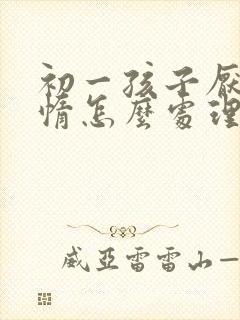 初一孩子厭
惰怎麼處理
威亞雷雷山—